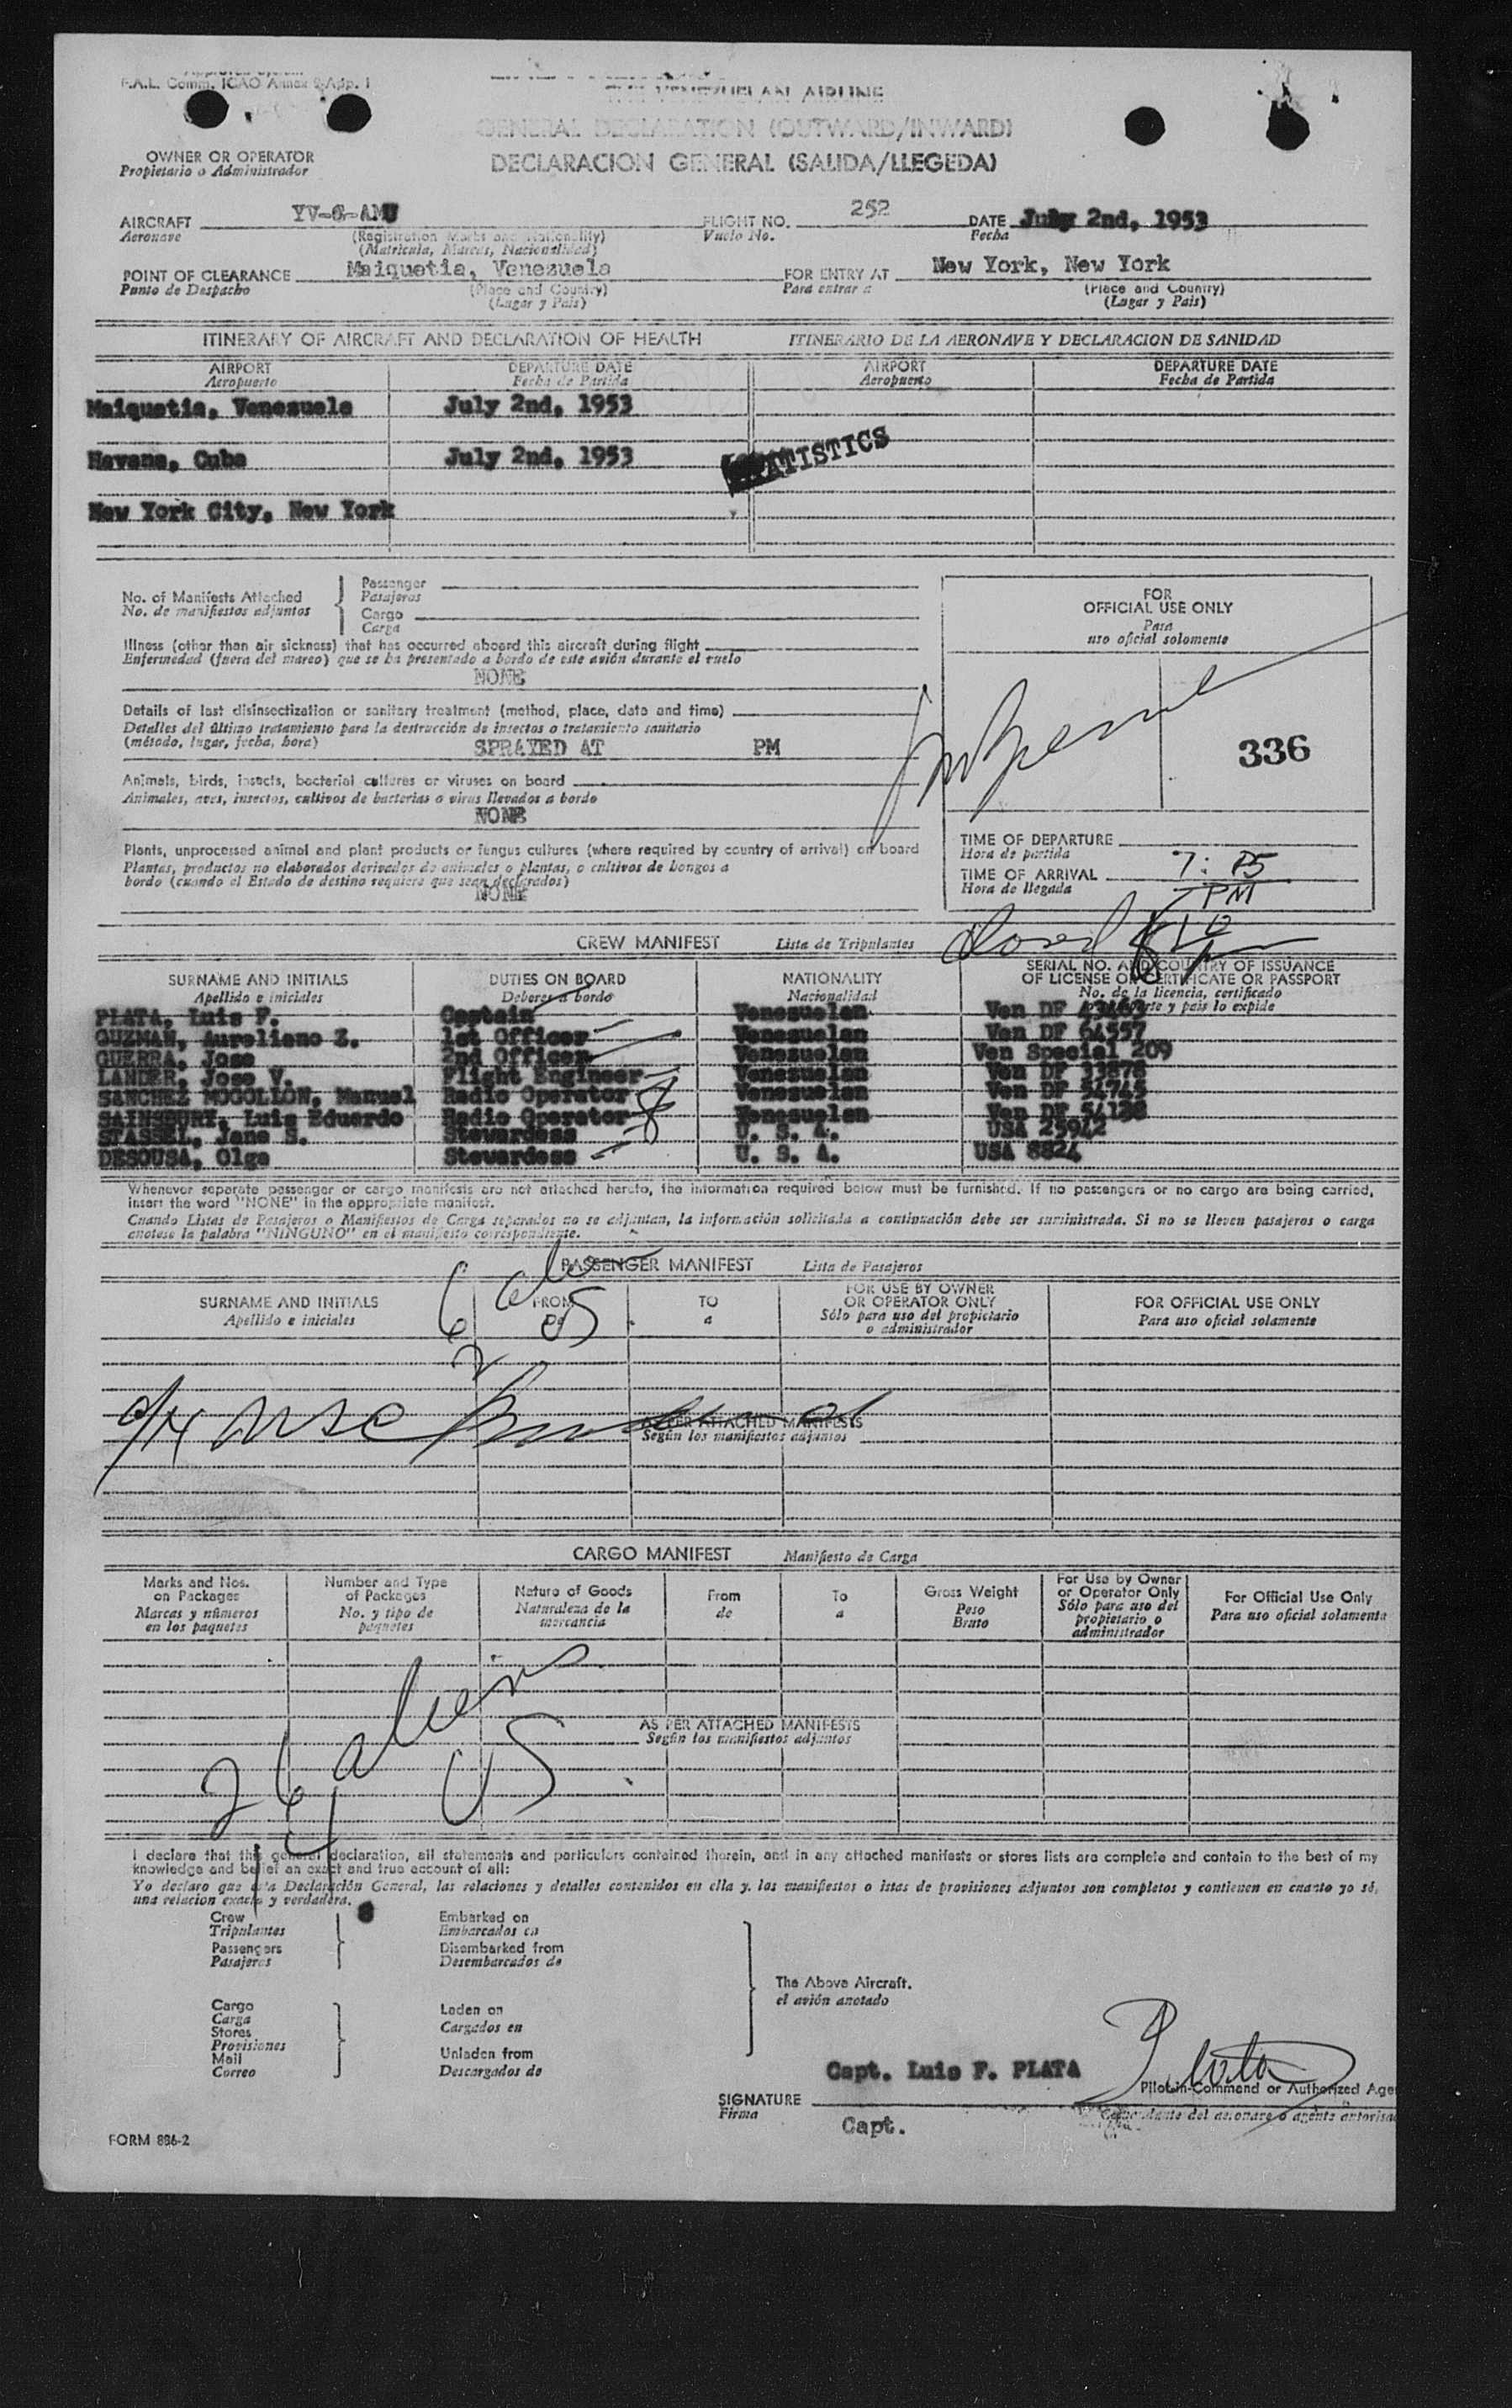 F.A.L. Comm. ICAO Annex 9-App. 1
THE VENEZUELAN AIRLINE
GENERAL DECLARATION (OUTWARD/INWARD)
DECLARACION GENERAL (SALIDA/LLEGEDA)
OWNER OR OPERATOR
Propietario o Administrador
AIRCRAFT YV-C-AMU FLIGHT NO. 252 DATE July 2nd, 1953
Aeronave (Registration Marks and Nationality) Vuelo No. Fecha
(Matricula, Marcas, Nacionalidad)
POINT OF CLEARANCE Maiquetia, Venezuela FOR ENTRY AT New York, New York
Punto de Despacho (Place and Country) Para entrar a (Place and Country)
(Lugar y Pais) (Lugar y Pais)
ITINERARY OF AIRCRAFT AND DECLARATION OF HEALTH ITINERARIO DE LA AERONAVE Y DECLARACION DE SANIDAD
AIRPORT DEPARTURE DATE AIRPORT DEPARTURE DATE
Aeropuerto Fecha de Partida Aeropuerto Fecha de Partida
Maiquetia, Venezuela July 2nd, 1953
Havana, Cuba July 2nd, 1953
STATISTICS
New York City, New York
No. of Manifests Attached
No. de manifiestos adjuntos
Passenger
Pasajeros
Cargo
Carga
Illness (other than air sickness) that has occurred aboard this aircraft during flight
Enfermedad (fuera del mareo) que se ha presentado a bordo de este avión durante el vuelo
NONE
Details of last disinsectization or sanitary treatment (method, place, date and time)
Detalles del último tratamiento para la destrucción de insectos o tratamiento sanitario
(método, lugar, fecha, hora) SPRAYED AT PM
Animals, birds, insects, bacterial cultures or viruses on board
Animales, aves, insectos, cultivos de bacterias o virus llevados a bordo
NONE
Plants, unprocessed animal and plant products or fungus cultures (where required by country of arrival) on board
Plantas, productos no elaborados derivados de animales o plantas, o cultivos de hongos a
bordo (cuando el Estado de destino requiere que sean declarados)
NONE
FOR
OFFICIAL USE ONLY
Para
uso oficial solomente
336
TIME OF DEPARTURE
Hora de partida
TIME OF ARRIVAL 7:
Hora de llegada PM
CREW MANIFEST Lista de Tripulantes
SURNAME AND INITIALS DUTIES ON BOARD NATIONALITY SERIAL NO. AND COUNTRY OF ISSUANCE
OF LICENSE OR CERTIFICATE OR PASSPORT
Apellido e iniciales Deberes a bordo Nacionalidad No. de la licencia, certificado
y pais lo expide
PLATA, Luis F. Captain Venezuelan Ven DF
GUZMAN, Aureliano Z. 1st Officer Venezuelan Ven DF 64557
GUERRA, Jose 2nd Officer Venezuelan Ven Special 209
LANDER, Jose V. Flight Engineer Venezuelan Ven DF 33878
SANCHEZ MOGOLLON, Manuel Radio Operator Venezuelan Ven DF 54745
SAINSBURY, Luis Eduardo Radio Operator Venezuelan Ven DF 54138
STASSEL, Jane S. Stewardess U. S. A. USA 25942
DESOUSA, Olga Stewardess U. S. A. USA 8824
Whenever separate passenger or cargo manifests are not attached hereto, the information required below must be furnished. If no passengers or no cargo are being carried,
insert the word "NONE" in the appropriate manifest.
Cuando Listas de Pasajeros o Manifiestos de Carga separados no se adjuntan, la información solicitada a continuación debe ser suministrada. Si no se lleven pasajeros o carga
anotese la palabra "NINGUNO" en el manifiesto correspondiente.
PASSENGER MANIFEST Lista de Pasajeros
SURNAME AND INITIALS FROM TO FOR USE BY OWNER
OR OPERATOR ONLY FOR OFFICIAL USE ONLY
Apellido e iniciales De a Sólo para uso del propietario
o administrador Para uso oficial solamente
6
2
AS PER ATTACHED MANIFESTS
Según los manifiestos adjuntos
CARGO MANIFEST Manifiesto de Carga
Marks and Nos.
on Packages
Marcas y números
en los paquetes
Number and Type
of Packages
No. y tipo de
paquetes
Nature of Goods
Naturaleza de la
mercancia
From
de
To
a
Gross Weight
Peso
Bruto
For Use by Owner
or Operator Only
Sólo para uso del
propietario o
administrador
For Official Use Only
Para uso oficial solamente
AS PER ATTACHED MANIFESTS
Según los manifiestos adjuntos
26 aliens
US
I declare that this general declaration, all statements and particulars contained therein, and in any attached manifests or stores lists are complete and contain to the best of my
knowledge and belief an exact and true account of all:
Yo declaro que esta Declaración General, las relaciones y detalles contenidos en ella y. los manifiestos o istas de provisiones adjuntos son completos y contienen en cuanto yo sé,
una relacion exacta y verdadera.
Crew
Tripulantes
Passengers
Pasajeros
Embarked on
Embarcados en
Disembarked from
Desembarcados de
Cargo
Carga
Stores
Provisiones
Mail
Correo
Laden on
Cargados en
Unladen from
Descargados de
The Above Aircraft.
el avión anotado
Capt. Luis F. PLATA Plata
SIGNATURE Pilot-in-Command or Authorized Age
Firma Capt. Comandante del aeronare o agente autorisa
FORM 886-2